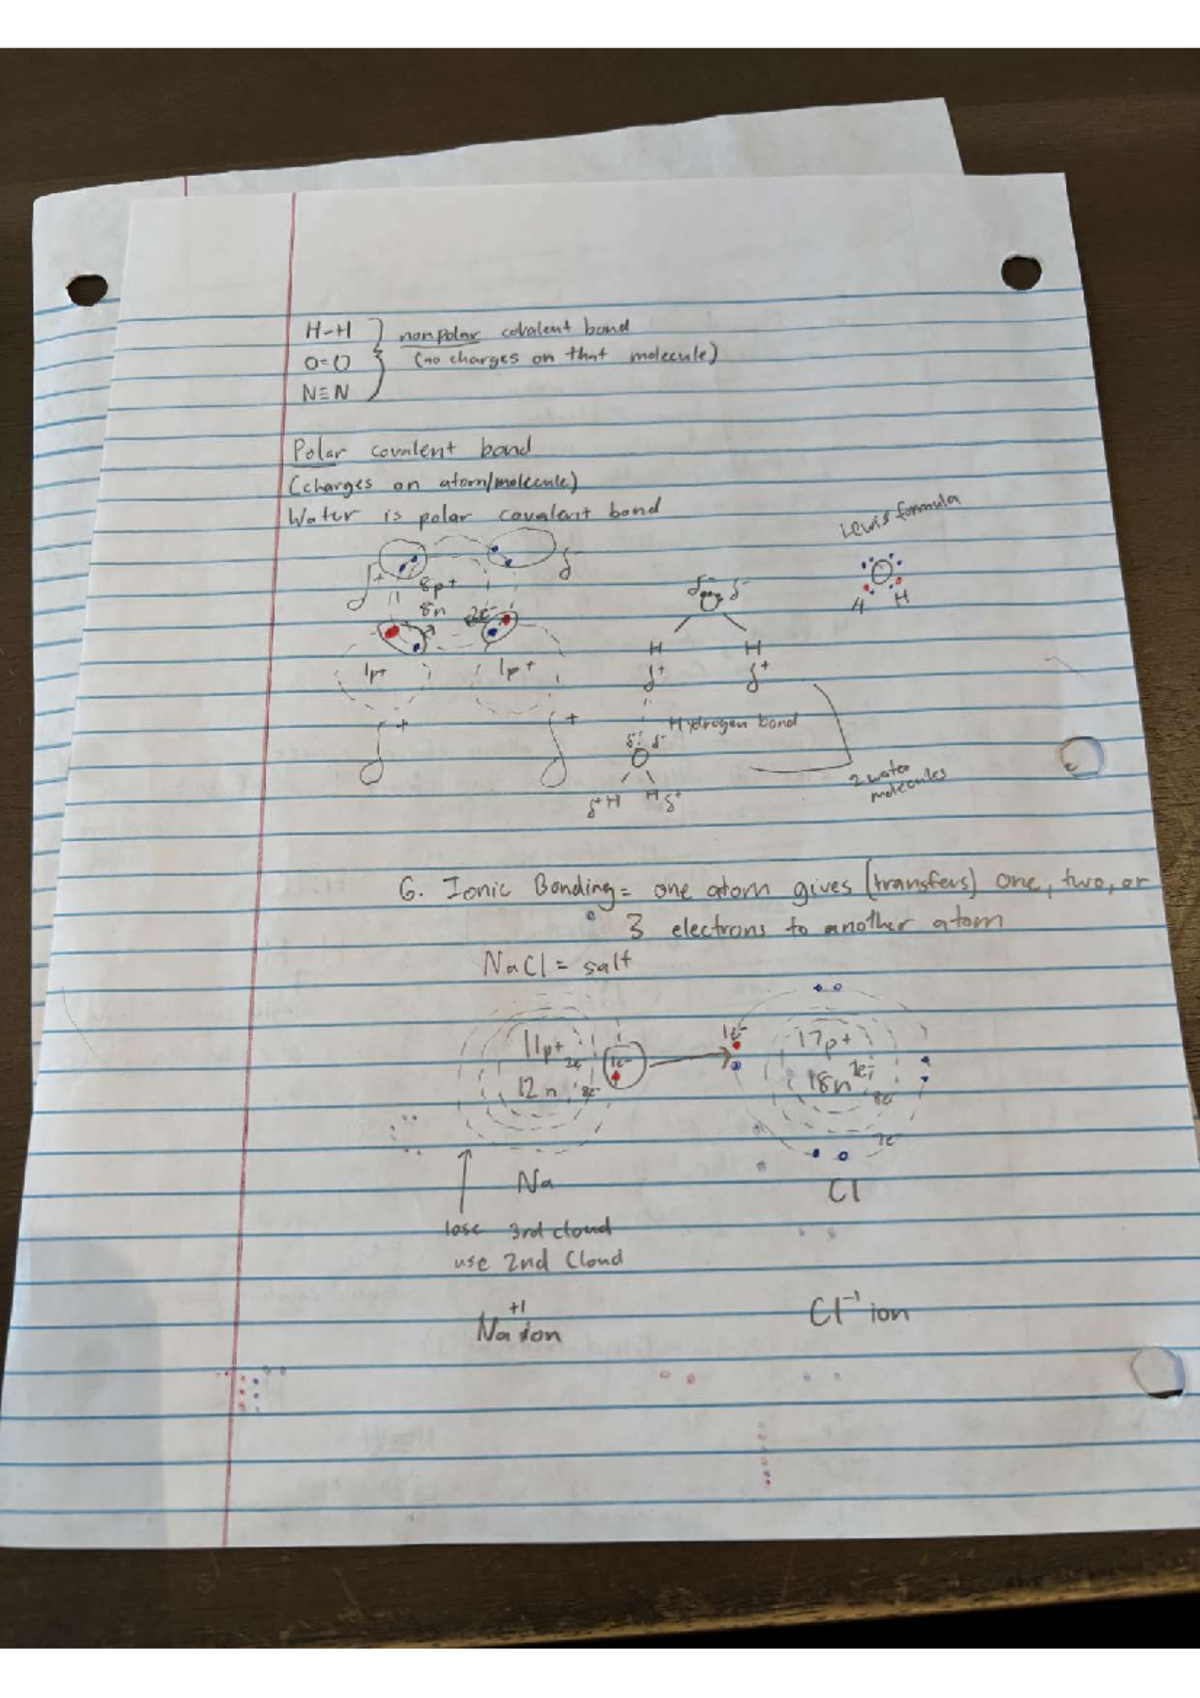 H-H } nonpolar covalent bond
O=O (no charges on that molecule)
N≡N
Polar covalent bond
(charges on atom/molecule)
Water is polar covalent bond
Lewis formula
δ+ δ-
8p+
8n 2e-
1p+ 1p+
δ+ δ+
δ- δ-
H H
δ+ δ+
Hydrogen bond
δ- δ-
O
δ+ H H δ+
2 water
molecules
H
6. Ionic Bonding = one atom gives (transfers) one, two, or
3 electrons to another atom
NaCl = salt
11p+ 2e- 1e-
12n 8e-
1e- 17p+
18n 2e-
8e-
7e-
Na Cl
lose 3rd cloud
use 2nd Cloud
Na+1 ion Cl-1 ion